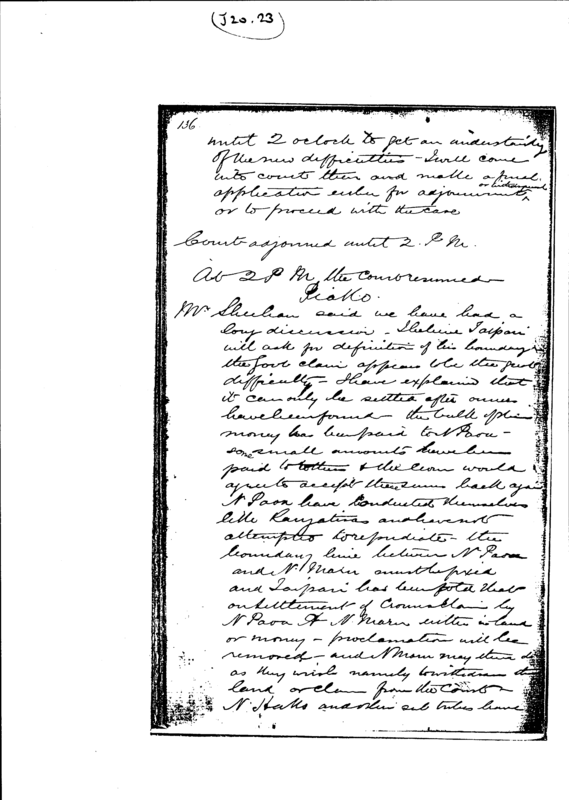 (J20.23)
136
until 2 oclock to get an understanding
of the new difficulties - I will come
into court then and make a final
application either for adjournment
or to proceed with the case
Court adjourned until 2. P.M.
At 2 P M the Court resumed
Piako.
Mr Sheehan said we have had a
long discussion - Taipari
will ask for definition of his boundary
the Govt claim appears to be the great
difficulty - I have explained that
it can only be settled after owners
have been found - the bulk of the
money has been paid to N Paoa -
some small amounts have been
paid to others & the Crown would
agree to accept these sums back again
N Paoa have conducted themselves
like Rangatiras and have not
attempted to repudiate - the
boundary line between N. Paoa
and N. Maru must be fixed
and Taipari has been told that
on settlement of Crowns Claim by
N Paoa & N Maru either in land
or money - proclamation will be
removed - and N Maru may then do
as they wish namely to withdraw the
land or claim from the Court -
N. Hako and their sub tribes have